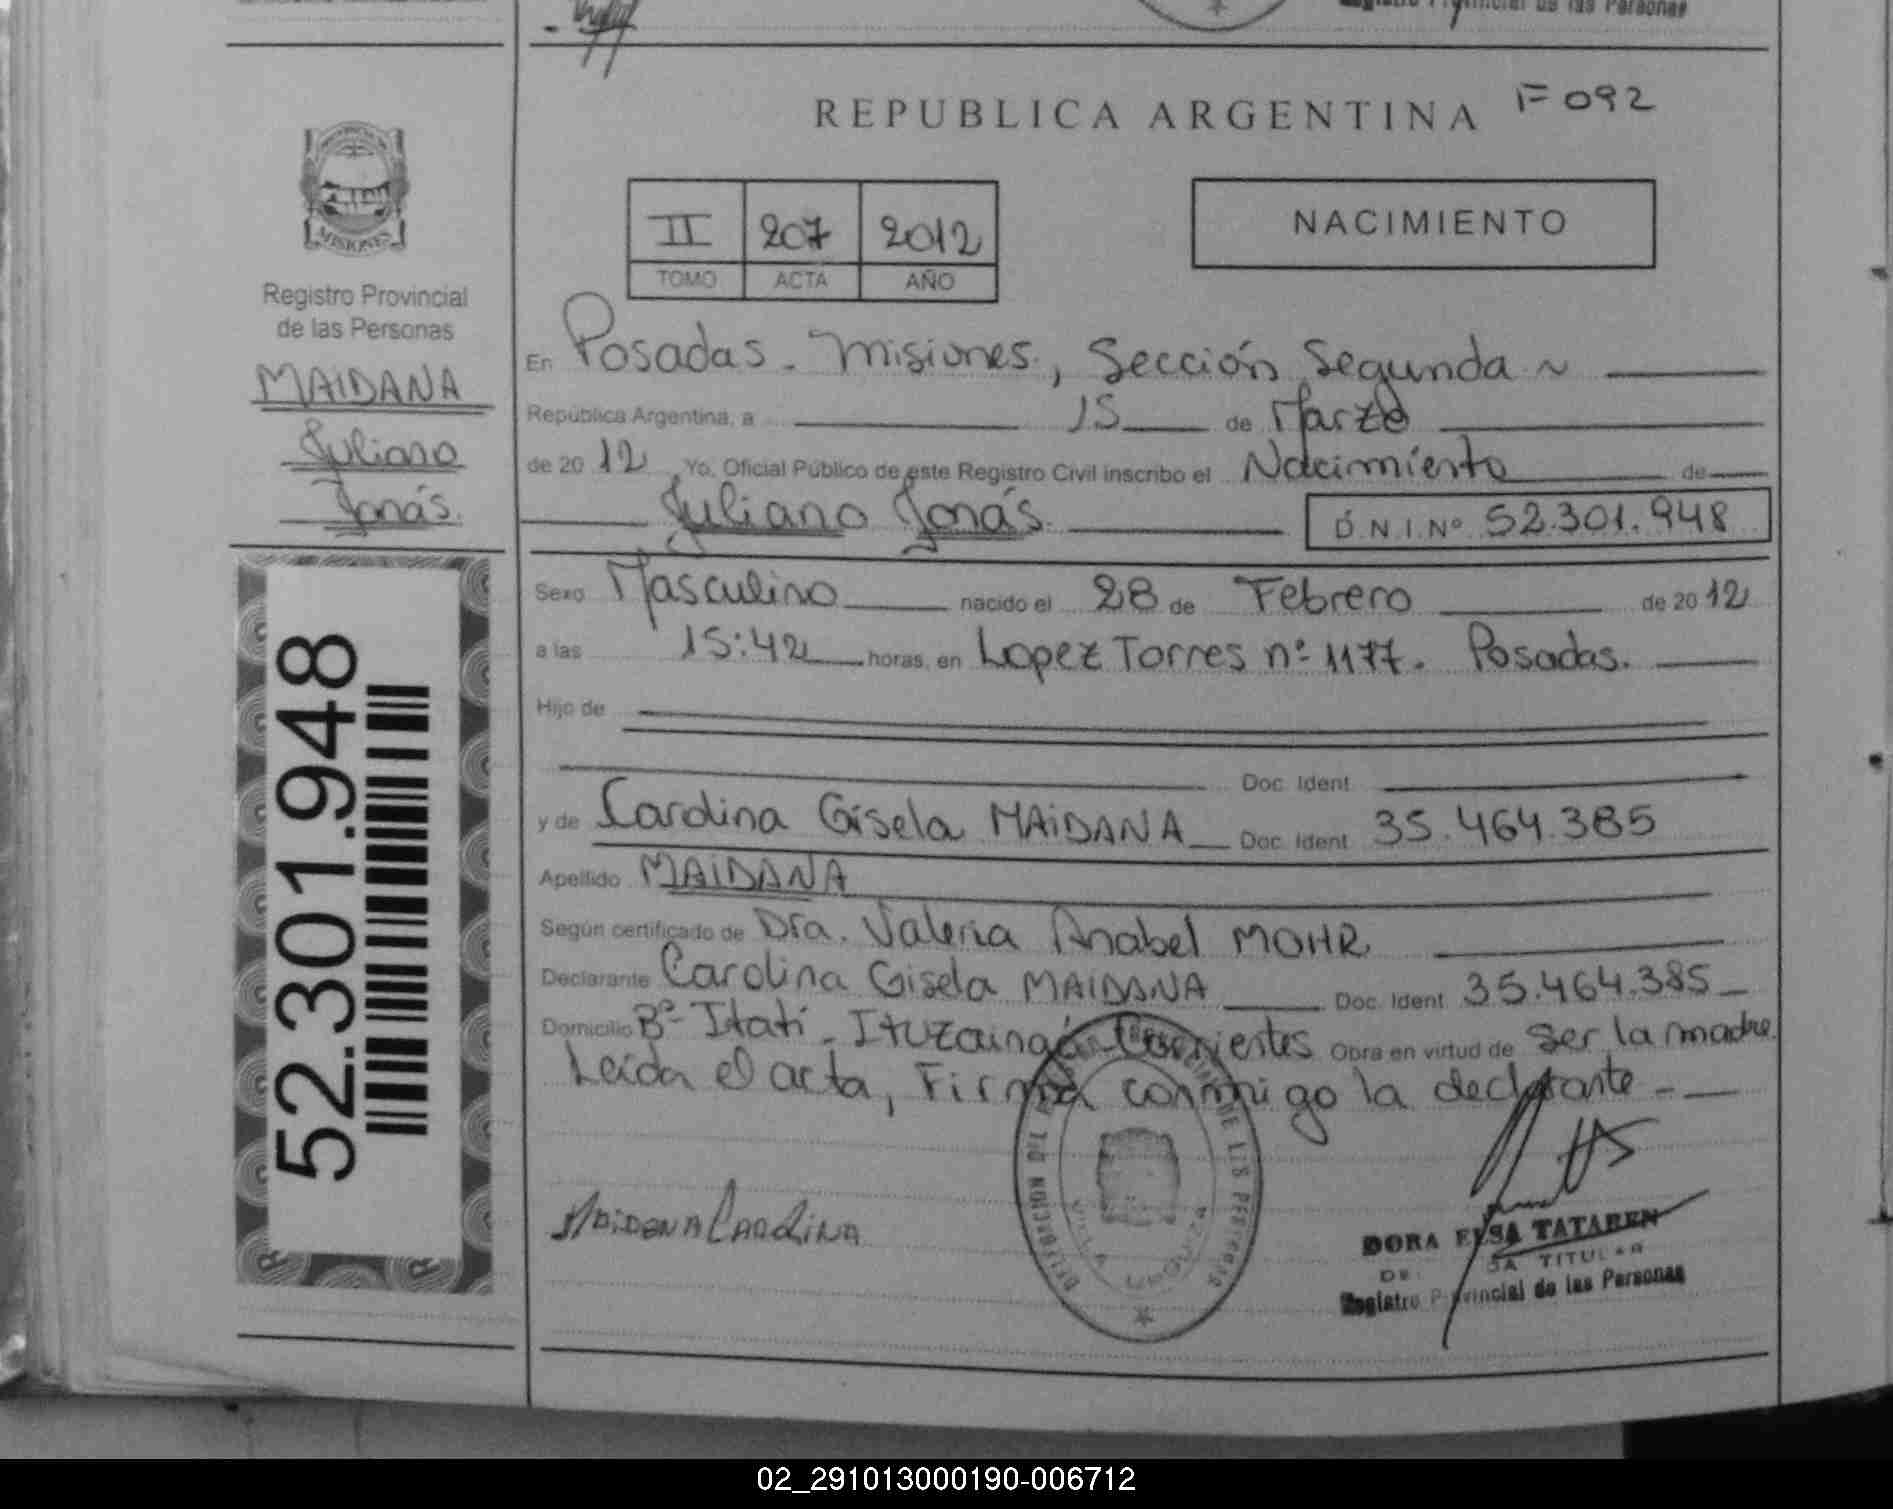 Registro Provincial de las Personas
REPUBLICA ARGENTINA F 092
MISIONES
Registro Provincial
de las Personas
MAIDANA
Juliano
Jonás.
52.301.948
II 207 2012
TOMO ACTA AÑO
NACIMIENTO
En Posadas. Misiones, Sección Segunda
República Argentina, a 15 de Marzo
de 20 12 Yo, Oficial Público de este Registro Civil inscribo el Nacimiento de
Juliano Jonás. D.N.I.Nº 52.301.948
Sexo Masculino nacido el 28 de Febrero de 20 12
a las 15:42 horas, en Lopez Torres nº 1177. Posadas.
Hijo de
Doc. Ident.
y de Carolina Gisela MAIDANA Doc. Ident. 35.464.385
Apellido MAIDANA
Según certificado de Dra. Valeria Anabel MOHR
Declarante Carolina Gisela MAIDANA Doc. Ident. 35.464.385
Domicilio Bº Itatí - Ituzaingó - Corrientes Obra en virtud de ser la madre.
Leída el acta, Firma conmigo la declarante -
MAIDANA CAROLINA
VILLA URQUIZA
DORA ELSA TATAREN
TITULAR
Registro Provincial de las Personas
02_291013000190-006712